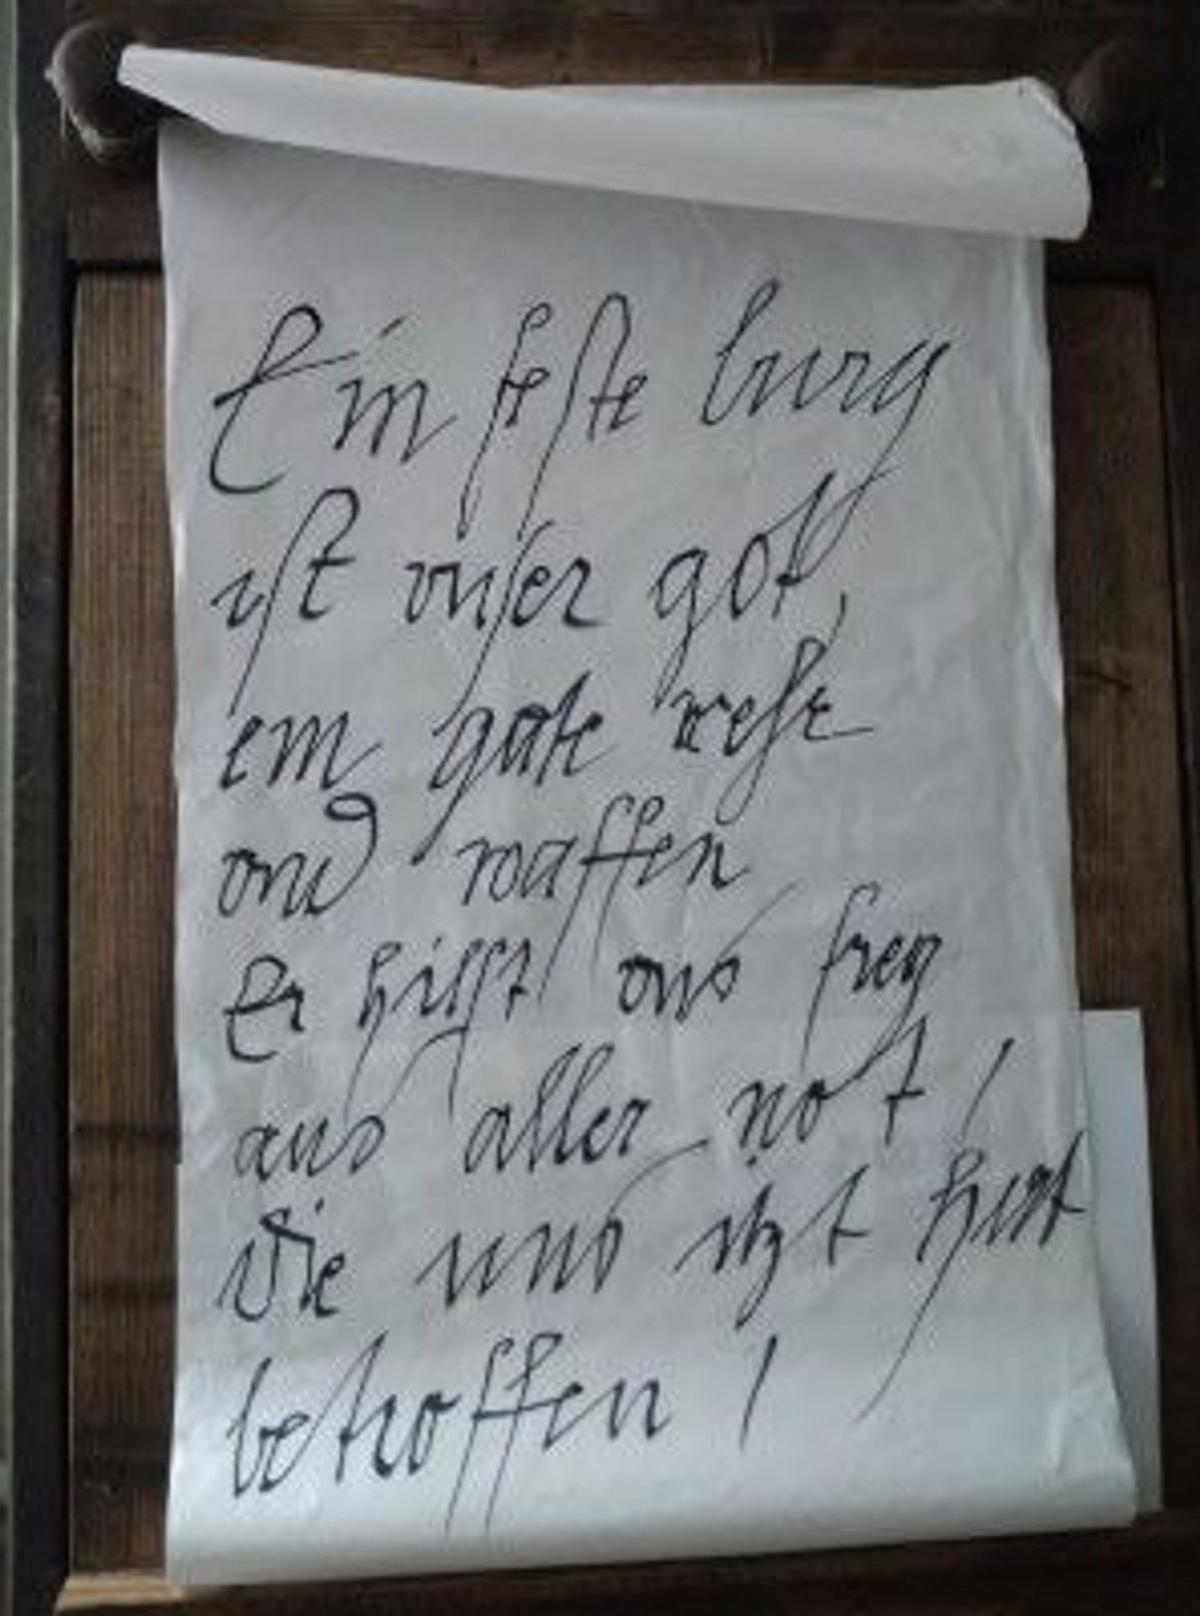 Ein feſte burg
iſt vnſer got,
ein gute wehr
vnd waffen
Er hilfft vns frey
aus aller not /
die uns itzt hat
betroffen /